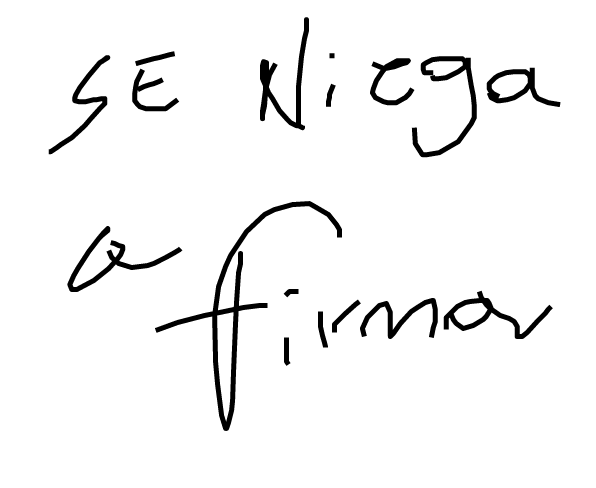 SE Niega
a firmar